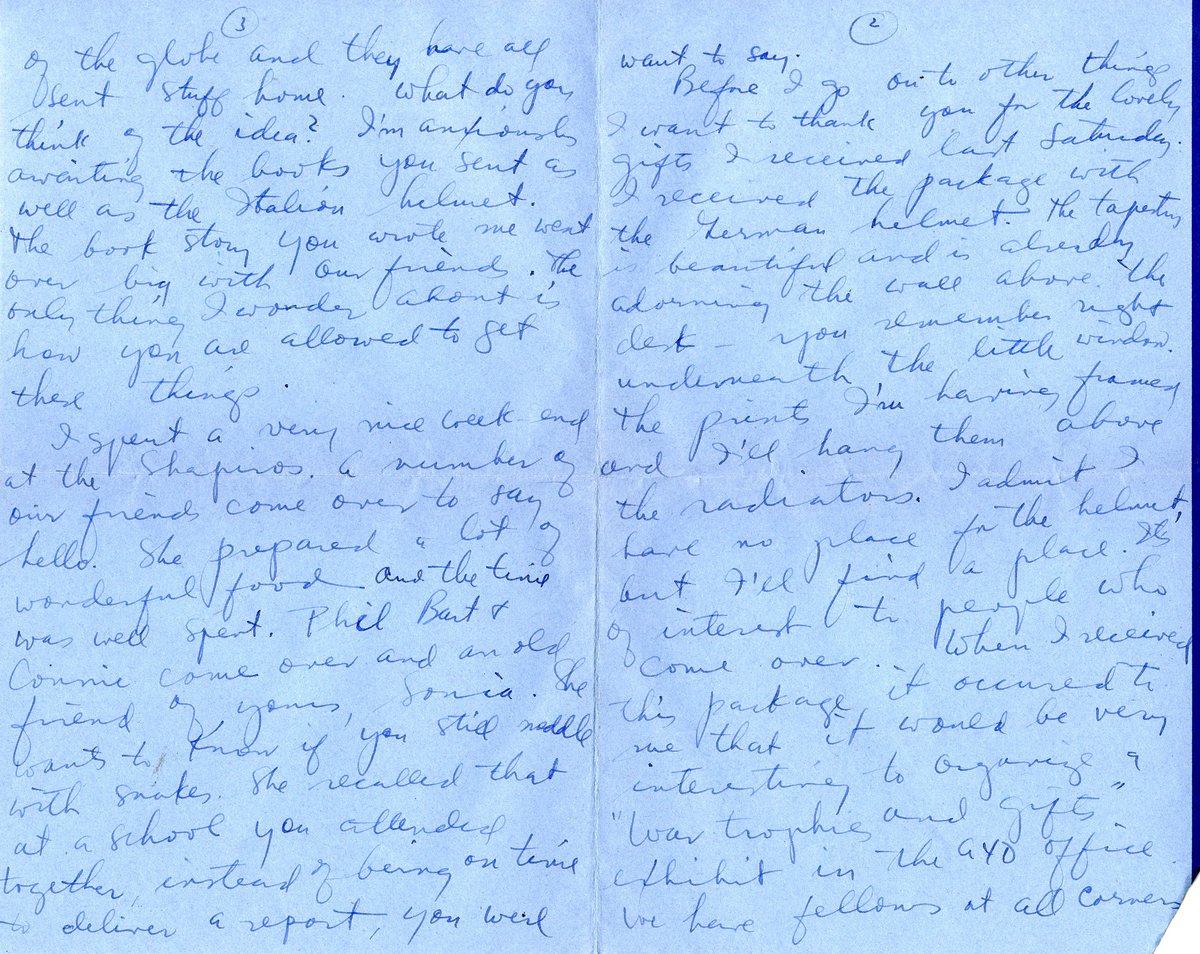 2
want to say.
Before I go on to other things
I want to thank you for the lovely
gifts I received last Saturday.
I received the package with
the German helmet. The tapestry
is beautiful and is already
adorning the wall above the
desk – you remember right
underneath the little window.
the prints I'm having framed
and I'll hang them above
the radiators. I admit I
have no place for the helmet,
but I'll find a place. It's
of interest to people who
come over. When I received
this package it occured to
me that it would be very
interesting to organize a
"War trophies and gifts"
exhibit in the AYD office
We have fellows at all corners
3
of the globe and they have all
sent stuff home. What do you
think of the idea? I'm anxiously
awaiting the books you sent as
well as the Italian helmet.
The book story you wrote me went
over big with our friends. The
only thing I wonder about is
how you are allowed to get
these things.
I spent a very nice week-end
at the Shapiros. A number of
our friends come over to say
hello. She prepared a lot of
wonderful food and the time
was well spent. Phil Bart +
Connie come over and an old
friend of yours, Sonia. She
wants to know if you still meddle
with snakes. She recalled that
at a school you attended
together, instead of being on time
to deliver a report, you were